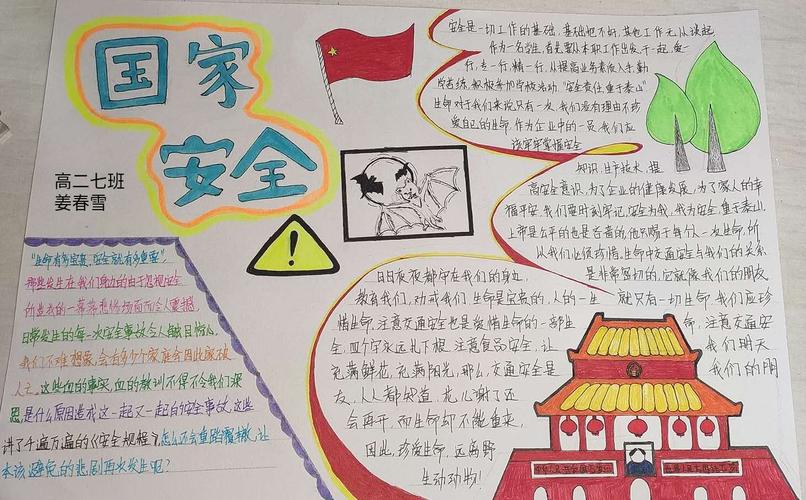 国家
安全
高二七班
姜春雪
"生命有多宝贵,安全就有多重要"
那些发生在我们身边的由于忽视安全
所造成的一幕幕悲惨场面而令人震撼
日常发生的每一次安全事故令人触目惊心,
我们不难想象,会有多少个家庭会因此家破
人亡。这些血的事实,血的教训不得不令我们深
思,是什么原因造成这一起又一起的安全事故,这些
讲了千遍万遍的《安全规程》怎么还会重蹈覆辙,让
本该避免的悲剧再次发生呢?
安全是一切工作的基础,基础也不的,其他工作无从谈起
作为一名,首先要从本职工作出发,干一起,爱一
行,专一行,精一行,从提高业务素质入手,勤
学苦练,积极参加学校活动,"安全责任,重于泰山"
生命对于我们来说只有一次,我们没有理由不珍
爱自己的生命,作为企业中的一员,我们应
该牢牢掌握安全
知识,生产技术,提
高安全意识,为了企业的健康发展,为了家人的幸
福平安,我们要时刻牢记,安全为我,我为安全,重于泰山,
上帝是公平的也是吝啬的,他只赐于每个人一次生命,所
从我们必须珍惜,生命中交通安全与我们的关系
是非常密切的,它就像我们的朋友
日日夜夜都守在我们的身边,
教育我们,对戒我们,生命是宝贵的,人的一生就只有一切生命,我们应珍
惜生命,注意交通安全也是爱惜生命的一部分
命,注意交通安
全,四个字永远扎下根,注意食品安全,让
我们明天
充满鲜花,充满阳光,那么,交通安全是
我们的朋
友,人人都知道,花儿谢了还
会再开,而生命却不能重来,
因此,珍爱生命,远离野
生动动物!